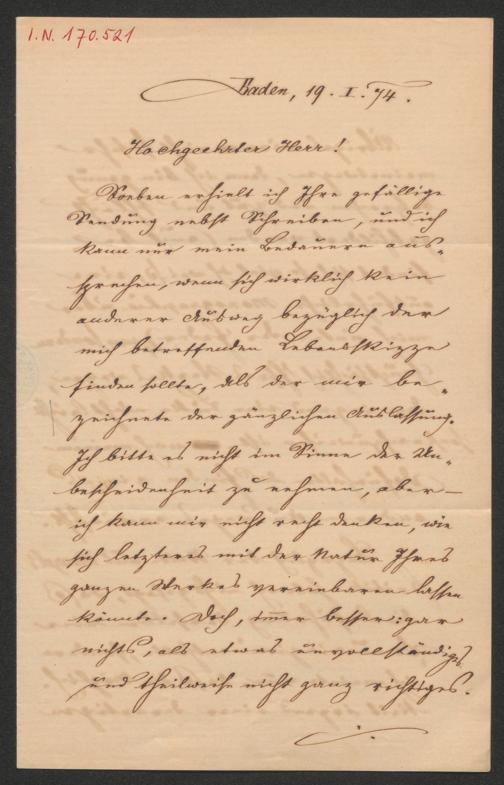 I.N. 170.521
Baden, 19. I. 74.
Hochgeehrter Herr!
Soeben erhielt ich Ihre gefällige
Sendung nebst Schreiben, und ich
kann nur mein Bedauern aus-
sprechen, wenn sich wirklich kein
anderer Ausweg bezüglich der
mich betreffenden Lebensskizze
finden sollte, als der mir be-
zeichnete der gänzlichen Auslassung.
Ich bitte es nicht im Sinne der Un-
bescheidenheit zu nehmen, aber—
ich kann mir nicht recht denken, wie
sich letzteres mit der Natur Ihres
ganzen Werkes vereinbaren lassen
könnte. Doch, im̅er besser: gar
nichts, als etwas unvollständiges
und theilweise nicht ganz richtiges.